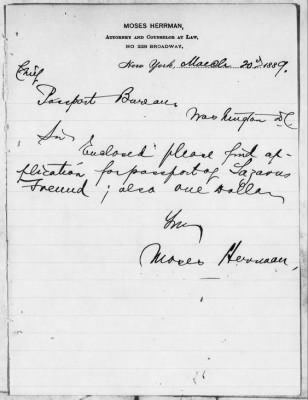 MOSES HERRMAN,
ATTORNEY AND COUNSELOR AT LAW,
NO 229 BROADWAY,
New York, March 20th 1889.
Chief
Passport Bureau
Washington DC
Sir
Enclosed please find ap-
plication for passport of Lazarus
Freund ; also one Dollar
Moses Herrman,